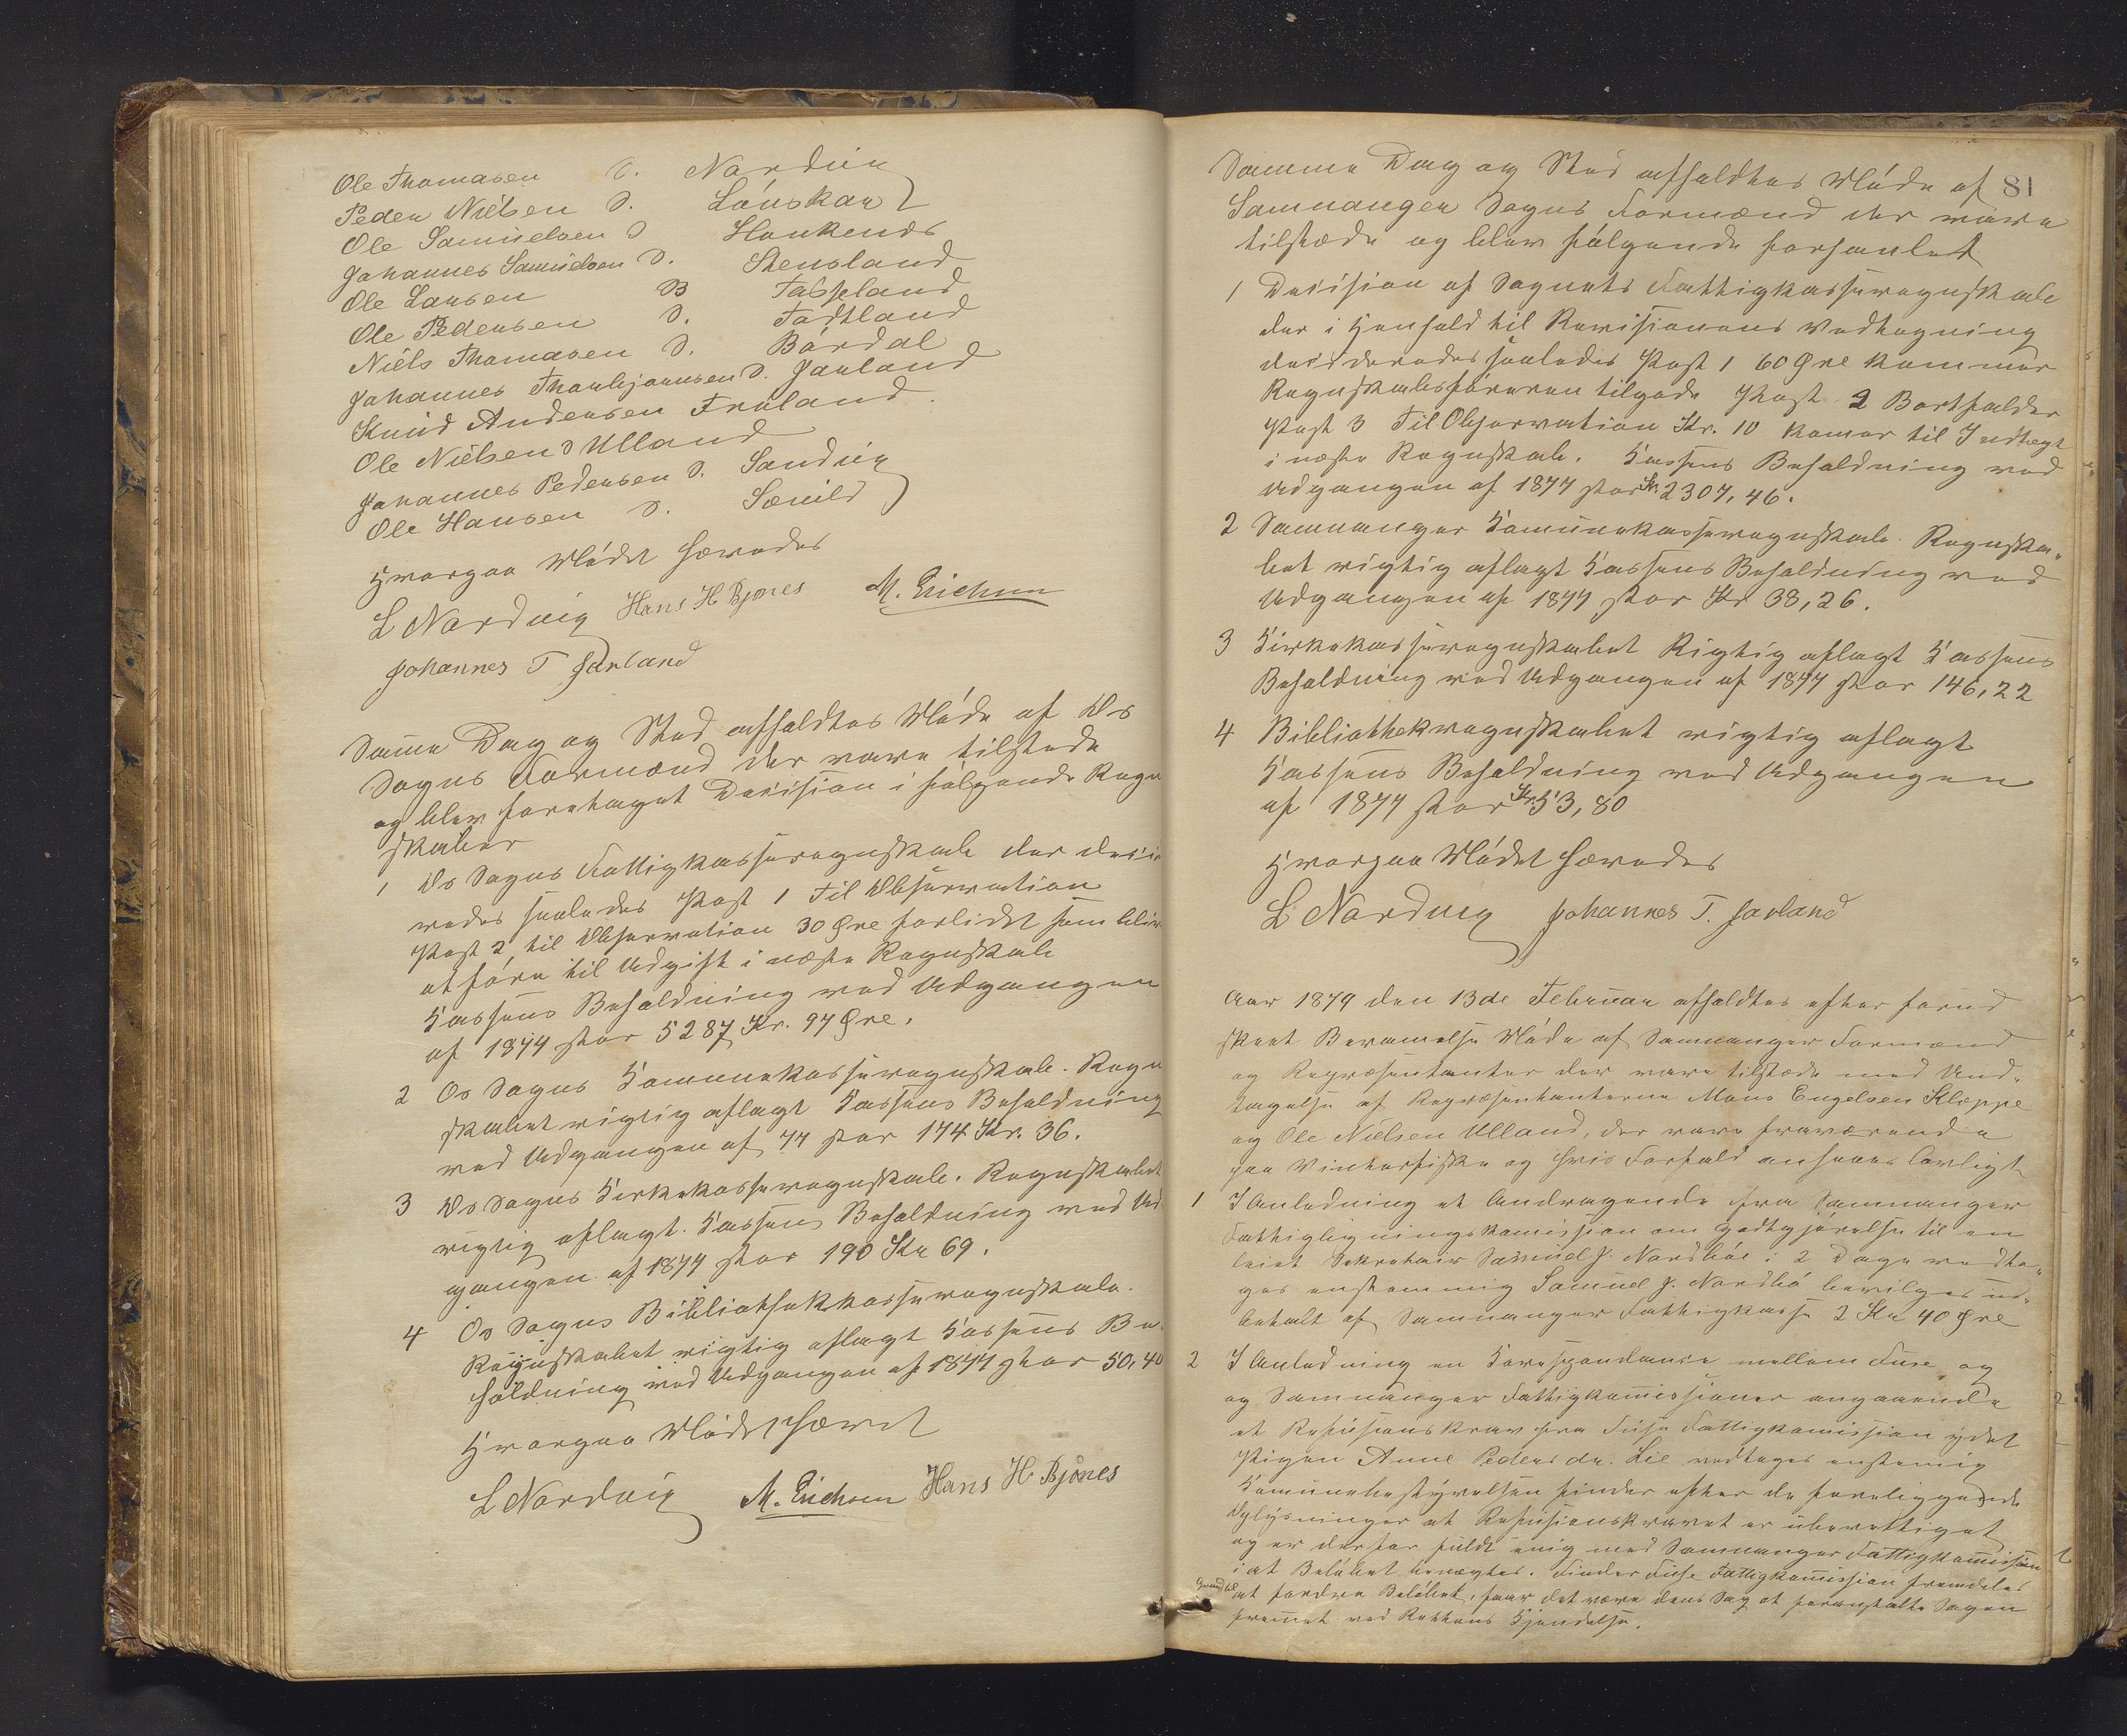 Ole Thomasen S. Nordvig
Peder Nielsen S. Lónskar
Ole Samuelsen S Haukenæs
Johannes Samuelsen S. Stensland
Ole Larsen B Tasseland
Ole Pedersen S. Tadtland
Niels Thomasen S. Bórdal
Johannes Thorbjørnsen S. Jarland
Knud Andersen Frøland.
Ole Nielsen S Ulland
Johannes Pedersen S. Sandvig
Ole Hansen S. Sævild
Hvorpaa Mødet hævedes
L Nordvig Hans H Bjønes M. Erichsen
Johannes T Jarland
Samme Dag og Sted afholdtes Møde af Os
Sogns Formænd der vare tilstede
og blev foretaget Decision i følgende Regn
skaber
1 Os Sogns Fattigkasseregnskab der deci
redes saaledes Post 1 Til Observation
Post 2 til Observation 30 Øre forlidt som bliver
at føre til Udgift i næste Regnskab
Kassens Beholdning ved Udgangen
af 1877 stor 5287 Kr. 97 Øre.
2 Os Sogns Kommunekasseregnskab. Regn
skabet rigtig aflagt Kassens Beholdning
ved Udgangen af 77 stor 174 Kr. 36.
3 Os Sogns Kirkekasseregnskab. Regnskabet
rigtig aflagt. Kassens Beholdning ved Ud
gangen af 1877 stor 190 Kr 69.
4 Os Sogns Bibliothekkasseregnskab.
Regnskabet rigtig aflagt Kassens Be
holdning ved Udgangen af 1877 stor 50,40
Hvorpaa Mødet hævet
L Nordvig M. Erichsen Hans H Bjønes
81
Samme Dag og Sted afholdtes Møde af
Samnanger Sogns Formænd der vare
tilstede og blev følgende forhandlet
1 Decision af Sognets Fattigkasseregnskab
der i Henhold til Revisionens Vedtegning
decideredes saaledes Post 1 60 Øre kommer
Regnskabsføreren tilgode Post 2 Bortfalder
Post 3 Til Observation Kr. 10 komer til Indtægt
i næste Regnskab. Kassens Beholdning ved
Udgangen af 1877 stor Kr. 2307,46.
2 Samnanger Komunekasseregnskab. Regnska-
bet rigtig aflagt Kassens Beholdning ved
Udgangen af 1877 stor Kr 38,26.
3 Kirkekasseregnskabet Rigtig aflagt Kassens
Beholdning ved Udgangen af 1877 stor 146,22
4 Bibliothekregnskabet rigtig aflagt
Kassens Beholdning ved Udgangen
af 1877 stor Kr. 53,80
Hvorpaa Mødet hævedes
L Nordvig Johannes T. Jarland
Aar 1879 den 13de Februar afholdtes efter forud
skeet Berammelse Møde af Samnanger Formænd
og Repræsentanter der vare tilstede med Und-
tagelse af Repræsentanterne Mons Engelsen Kleppe
og Ole Nielsen Ulland, der vare fraværende
paa Vinterfiske og hvis Forfald ansees lovligt
1 I Anledning et Andragende fra Samnanger
Fattigligningskomission om Godtgjørelse til en
leiet Sekretair Samuel J. Nordbø i 2 Dage vedta-
ges enstemmig Samuel J. Nordbø bevilges ud-
betalt af Samnanger Fattigkasse 2 Kr 40 Øre
2 I Anledning en Korespondance mellem Fuse og
og Samnanger Fattigkomissioner angaaende
et Refusionskrav fra Fuse Fattigkomission ydet
Pigen Anne Pedersdr. Lie vedtages enstemig
Komunebestyrelsen finder efter de foreliggende
Oplysninger at Refusionskravet er uberettiget
og er derfor fuldt enig med Samnanger Fattigkomission
i at Beløbet benegtes. Finder Fuse Fattigkomission fremdeles
Grund til at fordre Beløbet, faar det være dens Sag at foranstalte Sagen
fremmet ved Rettens Kjendelse.